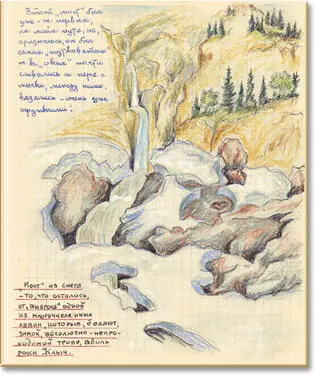 Этот "мост" был
уже - не первым,
на моём пути, но,
признаюсь, он был
самым "
т.к. "окна" почти
слились и пере -
мычки, между ними,
казались - очень уж
хрупкими!
"Мост" из снега
- то, что осталось,
от "выноса" одной
из многочисленных
лавин, которые, делают,
зимой, абсолютно - непро-
ходимой тропу, вдоль
реки Клыч.